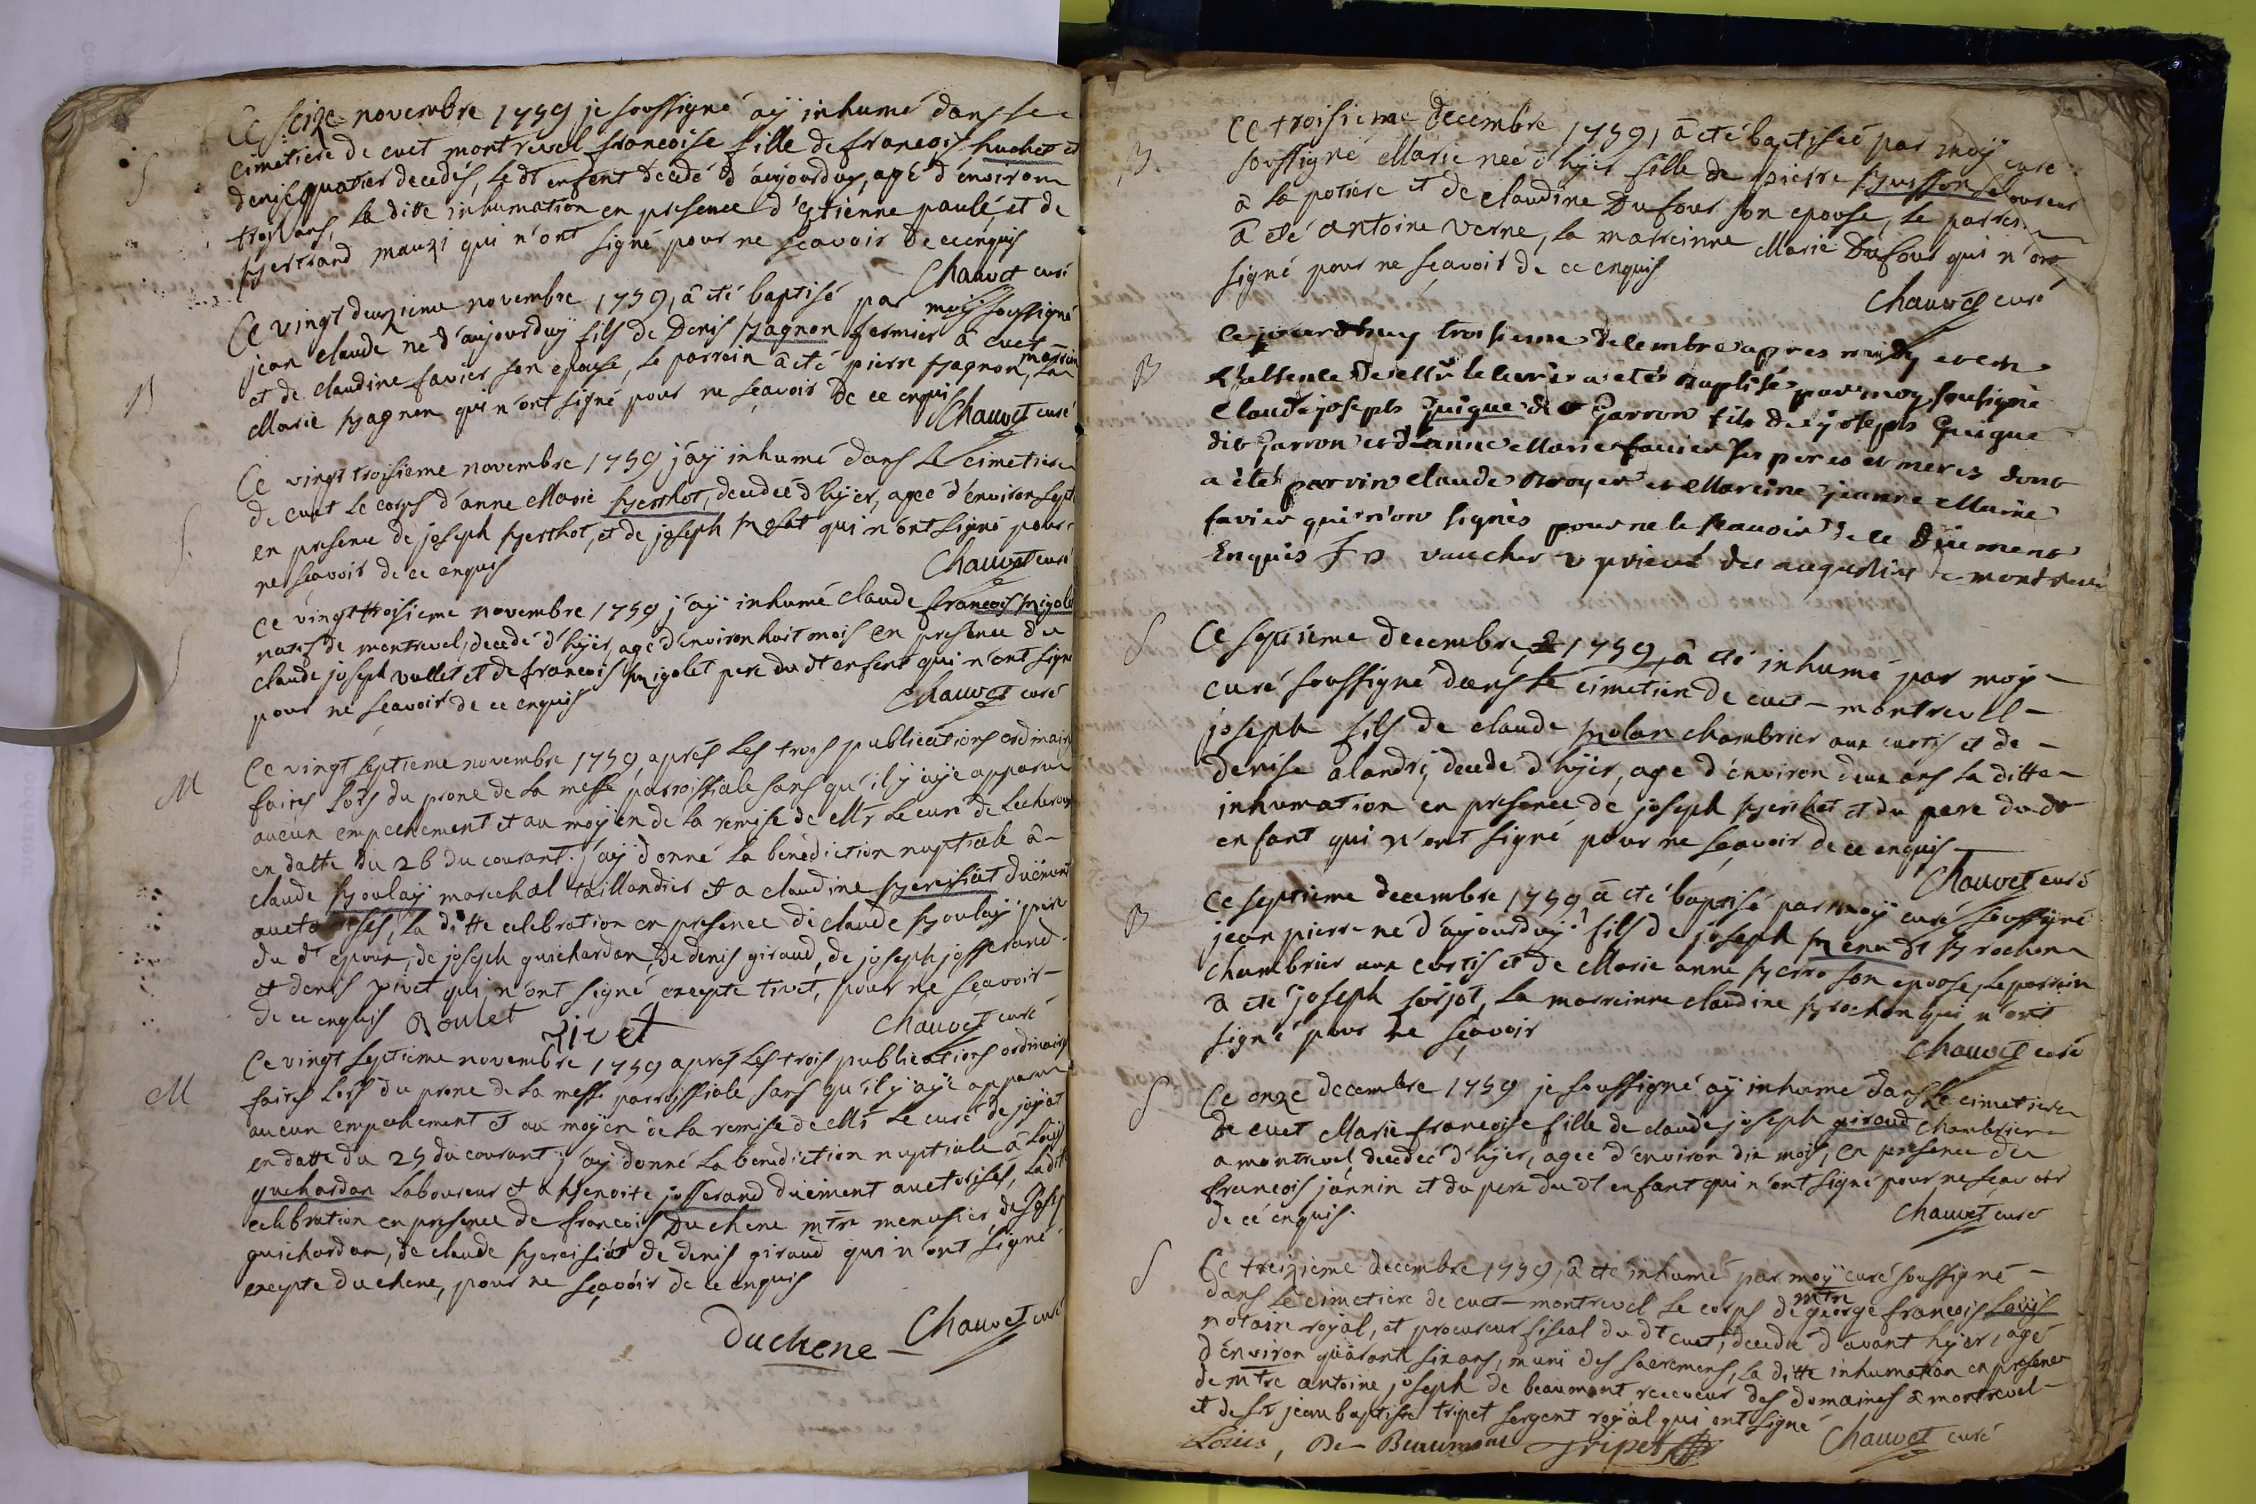 S
Ce seize novembre 1759 je soussigné aÿ inhumé dans le
cimetiere de cuet montrevel francoise fille de francois huchet et
denise quatier decedés, le dt enfent decedé d'aujourduy, agé d'environ
trois ans, la ditte inhumation en presence d'estienne paulé et de
bertrand mauzi qui n'ont signé pour ne sçavoir de ce enquis
Chauvet curé
B
Ce vingt deuxieme novembre 1759, â eté baptisé par moÿ soussigné
jean claude né d'aujourduÿ fils de Denis bagnon fermier a cuet
et de claudine favier son epouse, le parrain â eté pierre bagnon, la marrine
Marie bagnon qui n'ont signé pour ne sçavoir de ce enquis
Chauvet curé
S
Ce vingt troisieme novembre 1759 j'aÿ inhumé dans le cimetiere
de cuet le corps d'anne Marie berthot, decedeé d'hÿer, ageé d'environ sept
en presence de joseph berthot, et de joseph molat qui n'ont signé pour
ne sçavoir de ce enquis
Chauvet curé
S
Ce vingt troisieme novembre 1759 j'aÿ inhumé claude francois migolet
natif de montrevel, decedé d'hÿer, agé d'environ huit mois en presence de
claude joseph vullet et de francois migolet pere du dt enfent qui n'ont signé
pour ne sçavoir de ce enquis
Chauvet curé
M
Ce vingt septieme novembre 1759, aprés les trois publications ordinaires
faites lors du prone de la messe parroissiale sans qu'il y aÿe apparu
aucun empechement et au moÿen de la remise de Mr le curé de Lecheroux
en datte du 26 du courant j'aÿ donné la benediction nuptiale â
claude boulaÿ marechal taillandier et a claudine bereisiat duëment
auctorisés, la ditte celebration en presence de claude boulaÿ pere
du dt epoux, de joseph guichardon, de denis giraud, de joseph josserand
et denis pivet qui n'ont signé excepte pivet, pour ne sçavoir
de ce enquis Boulet
Chauvet curé
pivet
M
Ce vingt septieme novembre 1759 aprés les trois publications ordinaires
faites lors du prone de la messe parroissiale sans qu'il y aÿe apparu
aucun empechement et au moÿen de la remise de Mr le curé de jaÿat
en datte du 25 du courant j'aÿ donné la benediction nuptiale â Loüis
guichardon laboureur et a benoite josserand duëment auctorisés, la dite
celebration en presence de francois Duchene mtre menusier, de Joseph
guichardon, de claude bereisiat de denis giraud qui n'ont signé
excepte duchene, pour ne sçavoir de ce enquis
Duchene
Chauvet curé
B
Ce troisieme decembre 1759, â eté baptiseé par moÿ curé
soussigné Marie neé d'hÿer fille de pierre buisson laboureur
â la potiere et de claudine Dufour son epouse, le parrein
â eté antoine verne, la marreinne Marie Dufour qui n'ont
signé pour ne sçavoir de ce enquis
Chauvet curé
B
Cejourdhuy troisieme decembre apres midy et en
l'absence de Mr le curé a eté baptisé par moy souligné
Claude joseph guigue dit Garron fils de joseph guigue
dit Garron et d'anne Marie favier ses peres et meres dont
a été parrin claude broyer et Mareine jeanne Marie
favier qui n'on signés pour ne le scavoir de ce duement
Enquis F D vaucher v prieur des augustins de montrevel
S
Ce septieme decembre 1759, â eté inhumé par moÿ
curé soussigné dans le cimetiere de cuet-montrevel
joseph fils de claude molan chambrier aux curtis et de
denise alandrÿ decedé d'hÿer, agé d'environ deux ans la ditte
inhumation en presence de joseph berthet et du pere du dt
enfant qui n'ont signé pour ne sçavoir de ce enquis
Chauvet curé
B
Ce septieme decembre 1759 â eté baptisé par moÿ curé soussigné
jean pierre né d'aujourduÿ fils de joseph menu dt brochon
chambrier aux curtis et de Marie anne berro son epouse, le parrein
â eté joseph sorjot, la marreinne claudine brochon qui n'ont
signé pour ne sçavoir
Chauvet curé
S
Ce onze decembre 1759 je soussigné aÿ inhumé dans le cimetiere
de cuet Marie francoise fille de claude joseph giraud chambrier
a montrevel, decedeé d'hÿer, ageé d'environ dix mois, en presence de
francois jannin et du pere du dt enfant qui n'ont signé pour ne sçavoir
de cé enquis
Chauvet curé
S
Ce treizieme decembre 1759, â eté inhumé par moÿ curé soussigné
dans le cimetiere de cuet-montrevel le corps de mtre george francois Loüis
notaire royal, et procureur fiscal du dt cuet, decedé d'avant hÿer, agé
d'environ quarante six ans, muni des sacremens, la ditte inhumation en presence
de mtre antoine joseph de beaumont receveur des domaines a montrevel
et de sr jean baptiste tripet sergent royal qui ont signé
Loüis, De Beaumont Tripet
Chauvet curé